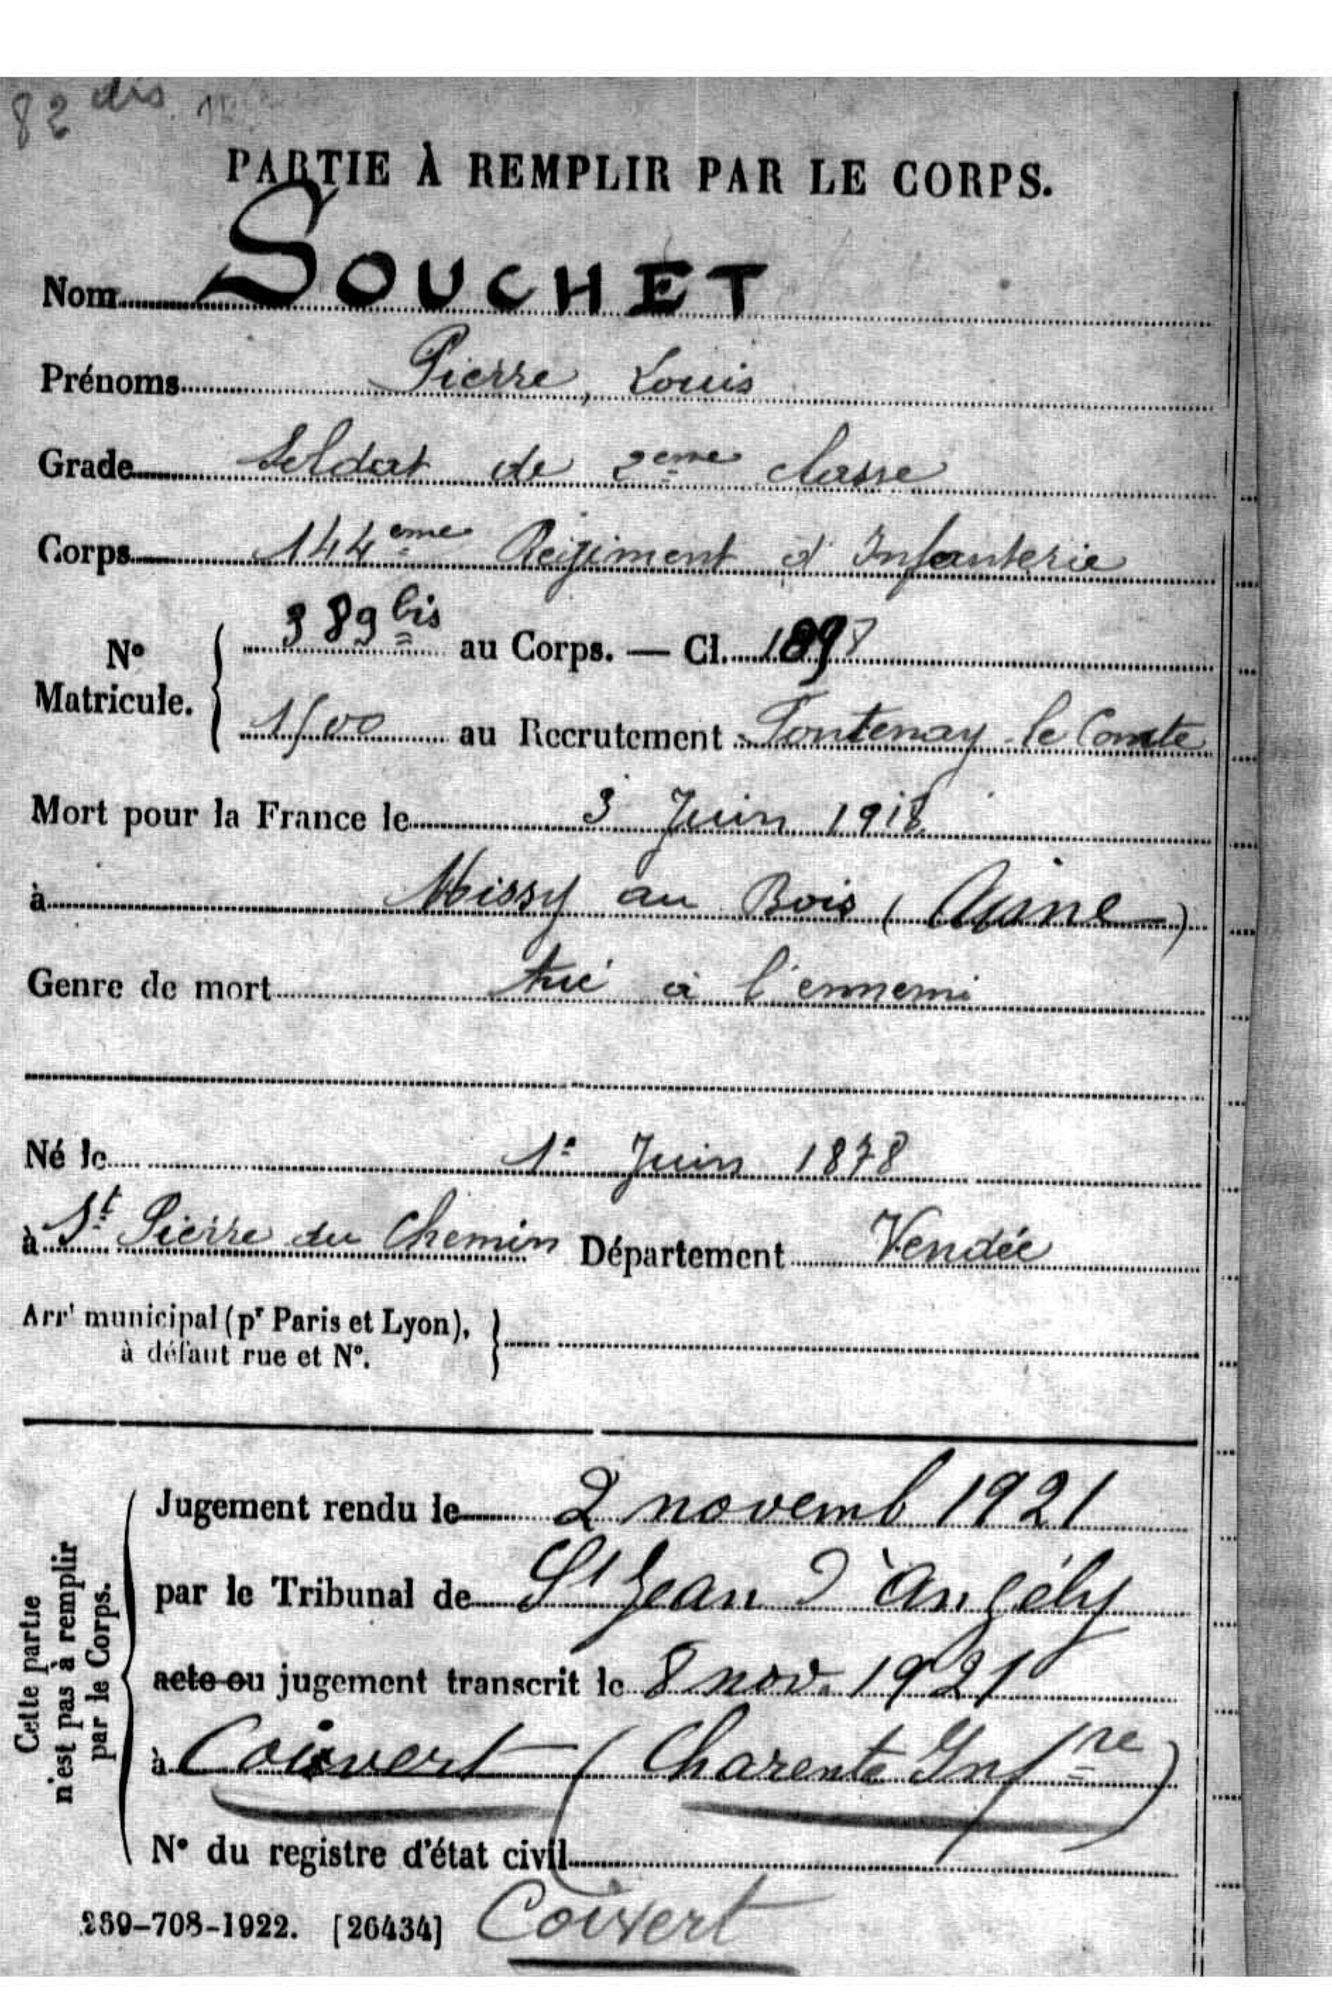 82 dis.
PARTIE À REMPLIR PAR LE CORPS.
Nom SOUCHET
Prénoms Pierre, Louis
Grade Soldat de 2eme classe
Corps 144eme Régiment d'Infanterie
N° Matricule. { 389 bis au Corps. — Cl. 1898
1500 au Recrutement Fontenay-le Comte
Mort pour la France le 3 Juin 1918
à Missy au Bois (Aisne)
Genre de mort tué à l'ennemi
Né le 1er Juin 1878
à St Pierre du Chemin Département Vendée
Arrt municipal (pr Paris et Lyon),
à défaut rue et N°. }
Cette partie
n'est pas à remplir
par le Corps.
Jugement rendu le 2 novemb 1921
par le Tribunal de St Jean d'Angély
acte ou jugement transcrit le 8 nov. 1921
à Coivert (Charente Infre)
N° du registre d'état civil
259-708-1922. [26434] Coivert